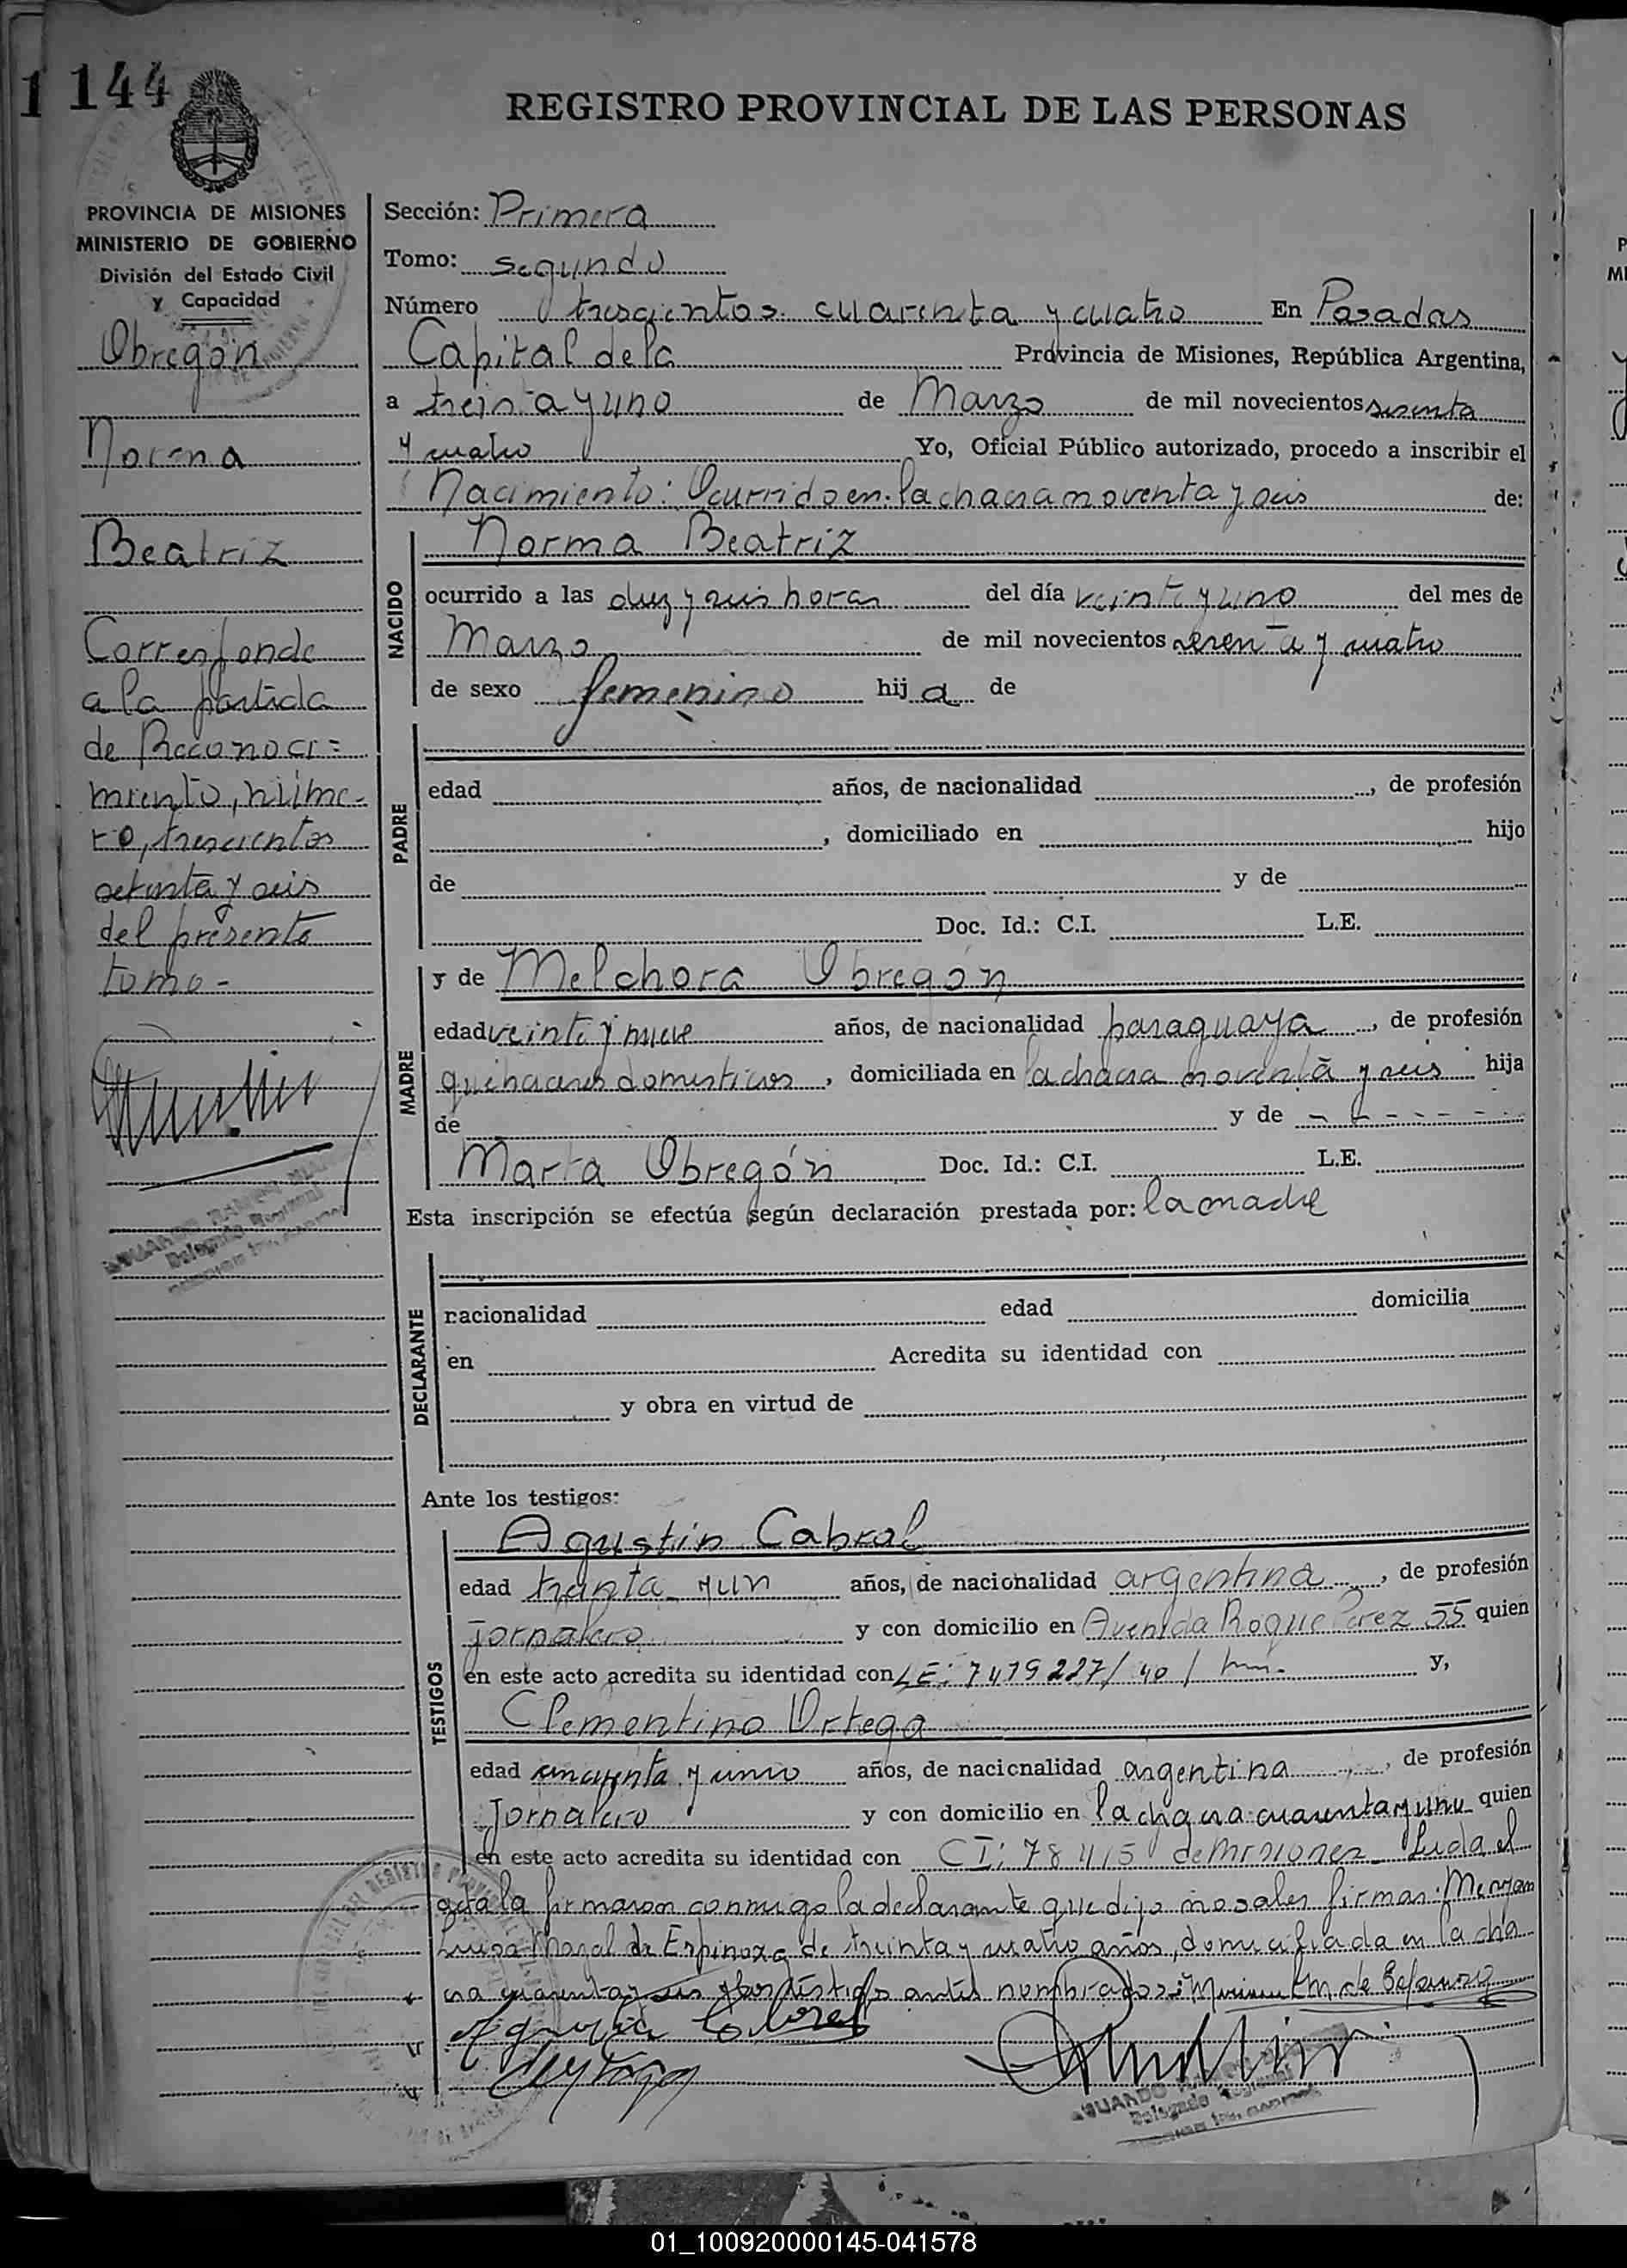 1 144
REGISTRO PROVINCIAL DE LAS PERSONAS
PROVINCIA DE MISIONES
MINISTERIO DE GOBIERNO
División del Estado Civil
y Capacidad
Obregón
Norma
Beatriz
Corresponde
a la partida
de Reconoci=
miento, núme-
ro, trescientos
setenta y seis
del presente
tomo-
Delegado Regional
Sección: Primera
Tomo: segundo
Número trescientos cuarenta y cuatro En Posadas
Capital de la Provincia de Misiones, República Argentina,
a treinta y uno de Marzo de mil novecientos sesenta
y cuatro Yo, Oficial Público autorizado, procedo a inscribir el
Nacimiento: Ocurrido en: la chacra noventa y seis de:
Norma Beatriz
NACIDO
ocurrido a las diez y seis horas del día veinte y uno del mes de
Marzo de mil novecientos sesenta y cuatro
de sexo femenino hija de
PADRE
edad años, de nacionalidad , de profesión
, domiciliado en hijo
de y de
Doc. Id.: C.I. L.E.
MADRE
y de Melchora Obregón
edad veinte y nueve años, de nacionalidad paraguaya, de profesión
quehaceres domesticos, domiciliada en la chacra noventa y seis hija
de y de - - - - - - -
Marta Obregón Doc. Id.: C.I. L.E.
Esta inscripción se efectúa según declaración prestada por: la madre
DECLARANTE
nacionalidad edad domicilia
en Acredita su identidad con
y obra en virtud de
Ante los testigos:
TESTIGOS
Agustin Cabral
edad treinta y un años, de nacionalidad argentina, de profesión
Jornalero y con domicilio en Avenida Roque Perez 55 quien
en este acto acredita su identidad con LE: 7479227/40/ y,
Clementino Ortega
edad cincuenta y años, de nacionalidad argentina, de profesión
Jornalero y con domicilio en la chacra cuarenta y uno quien
en este acto acredita su identidad con CI: 78415 de Misiones. Leida el
acta la firmaron conmigo la declarante que dijo no saber firmar:
Luisa de Espinoza de treinta y cuatro años, domiciliada en la cha
cra cuarenta y seis y los testigos antes nombrados:
Delegado Regional
01_100920000145-041578